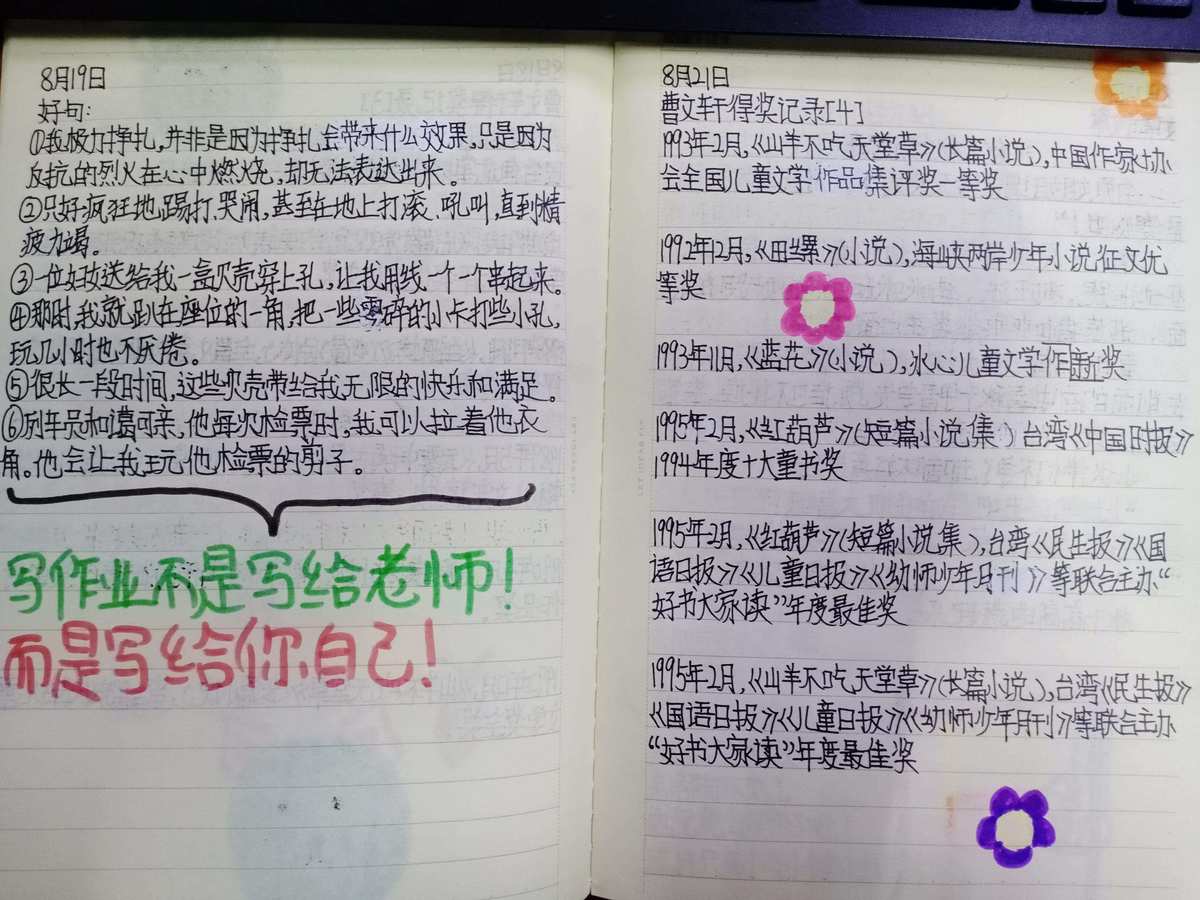 8月19日
好句:
①我极力挣扎,并非是因为挣扎会带来什么效果,只是因为
反抗的烈火在心中燃烧,却无法表达出来。
②只好疯狂地踢打、哭闹,甚至在地上打滚、吼叫,直到精
疲力竭。
③一位好友送给我一盒贝壳穿上孔,让我用线一个一个串起来。
④那时,我就趴在座位的一角,把一些零碎的小卡打些小孔,
玩几小时也不厌倦。
⑤很长一段时间,这些贝壳带给我无限的快乐和满足。
⑥列车员和蔼可亲,他每次检票时,我可以拉着他衣
角。他会让我玩他检票的剪子。
写作业不是写给老师!
而是写给你自己!
8月21日
曹文轩得奖记录[4]
1993年2月,《山羊不吃天堂草》(长篇小说),中国作家协
会全国儿童文学作品集评奖一等奖
1992年12月,《田螺》(小说),海峡两岸少年小说征文优
等奖
1993年11月,《蓝花》(小说),冰心儿童文学作新奖
1995年2月,《红葫芦》(短篇小说集)台湾《中国时报》
1994年度十大童书奖
1995年2月,《红葫芦》(短篇小说集),台湾《民生报》《国
语日报》《儿童日报》《幼师少年月刊》等联合主办“
好书大家读”年度最佳奖
1995年2月,《山羊不吃天堂草》(长篇小说),台湾《民生报》
《国语日报》《儿童日报》《幼师少年月刊》等联合主办
“好书大家读”年度最佳奖